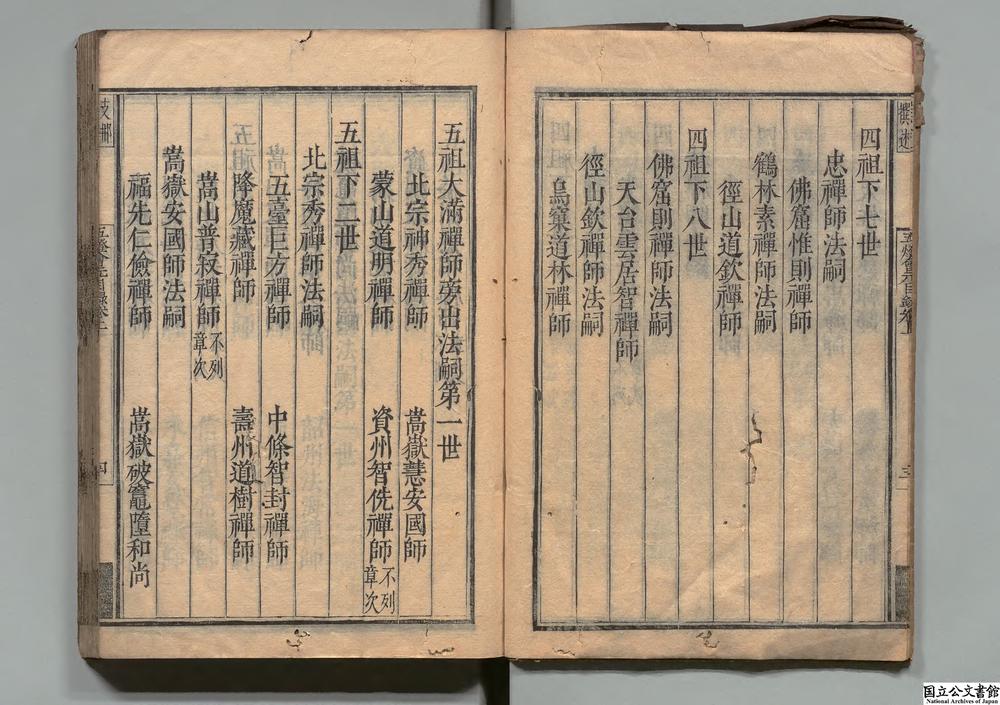 四祖下七世
忠禪師法嗣
佛窟惟則禪師
鶴林素禪師法嗣
徑山道欽禪師
四祖下八世
佛窟則禪師法嗣
天台雲居智禪師
徑山欽禪師法嗣
鳥窠道林禪師
三
五祖大滿禪師旁出法嗣第一世
北宗神秀禪師 嵩嶽慧安國師
蒙山道明禪師 資州智侁禪師 不列章次
五祖下二世
北宗秀禪師法嗣
五臺巨方禪師 中條智封禪師
降魔藏禪師 壽州道樹禪師
嵩山普寂禪師 不列章次
嵩嶽安國師法嗣
福先仁儉禪師 嵩嶽破竈墮和尚
四
国立公文書館
National Archives of Japan